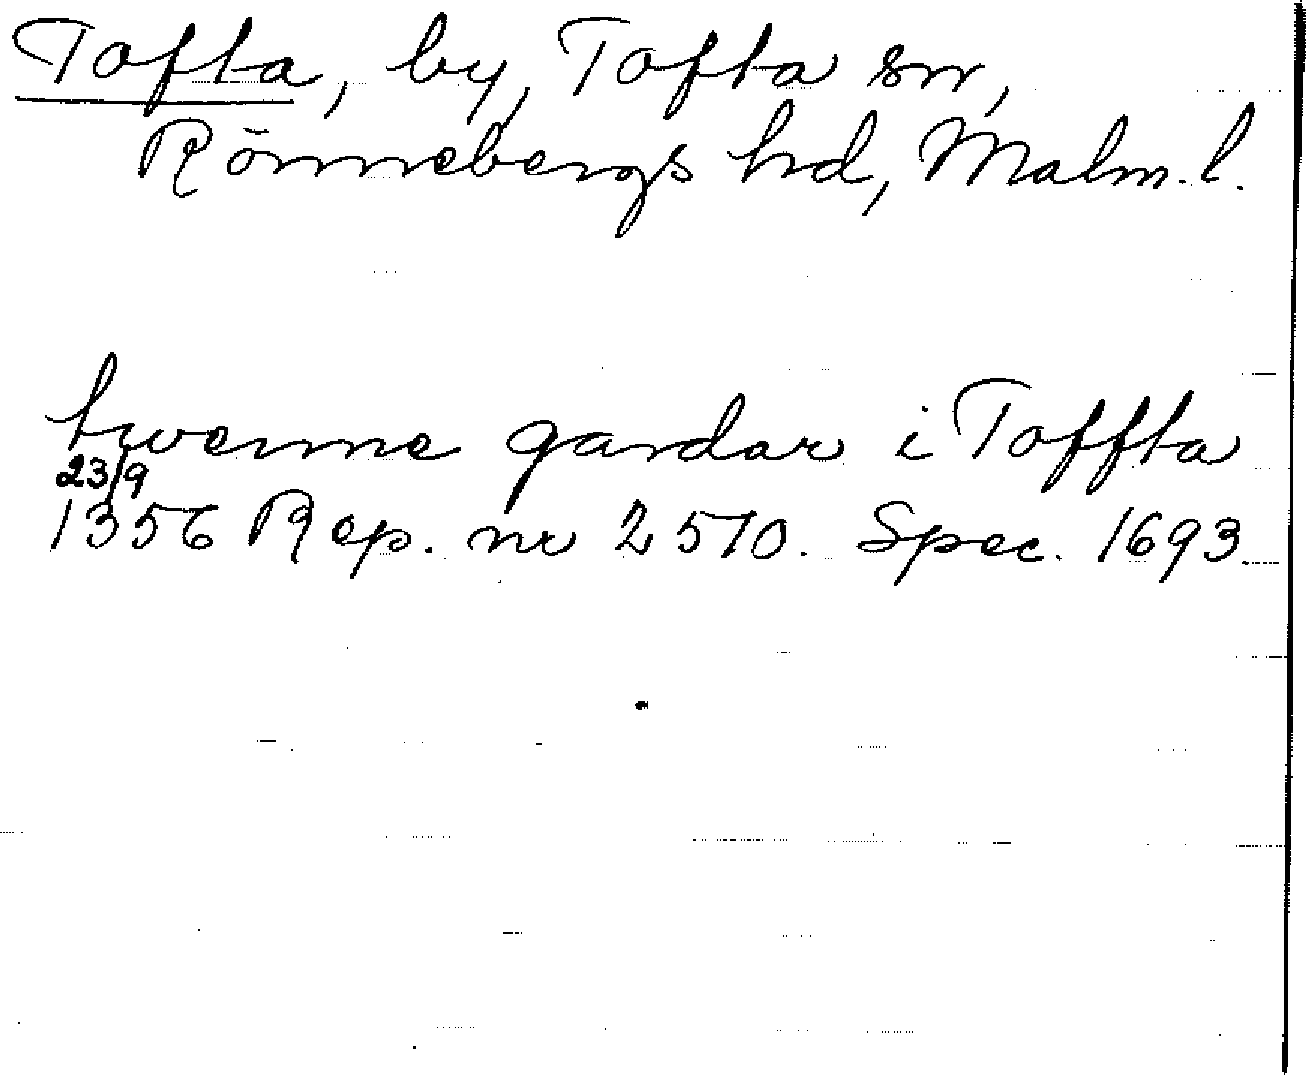 Tofta, by, Tofta sn,
Rönnebergs hd, Malm. l.
twenne gardar i Toffta
23/9
1356 Rep. nr 2510. Spec. 1693